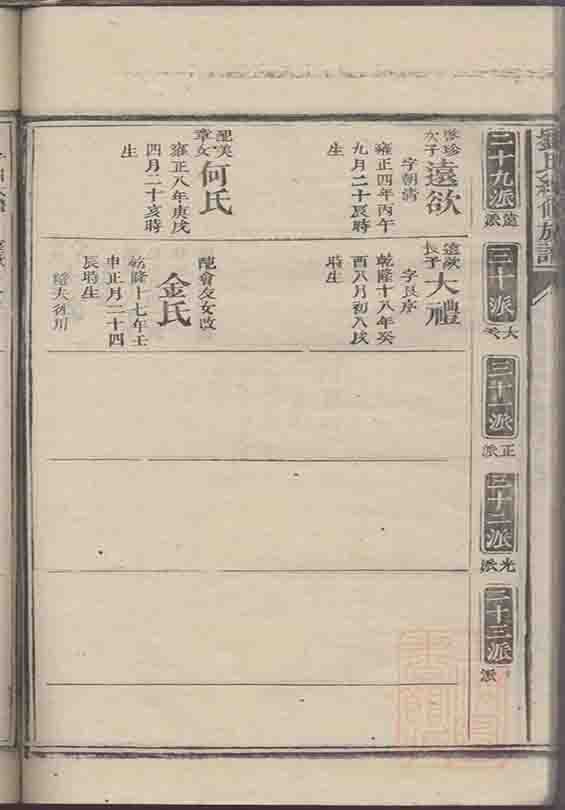 二十九派
遠派
三十派
大派
三十一派
正派
三十二派
光派
三十三派
派
次子
遠欲
字朝清
雍正四年丙午
九月二十辰時
生
配美
章女
何氏
雍正八年庚戌
四月二十亥時
生
遠欲
長子
大禮
字良序
乾隆十八年癸
酉八月初八戌
時生
配會友女改
金氏
乾隆十七年壬
申正月二十四
辰時生